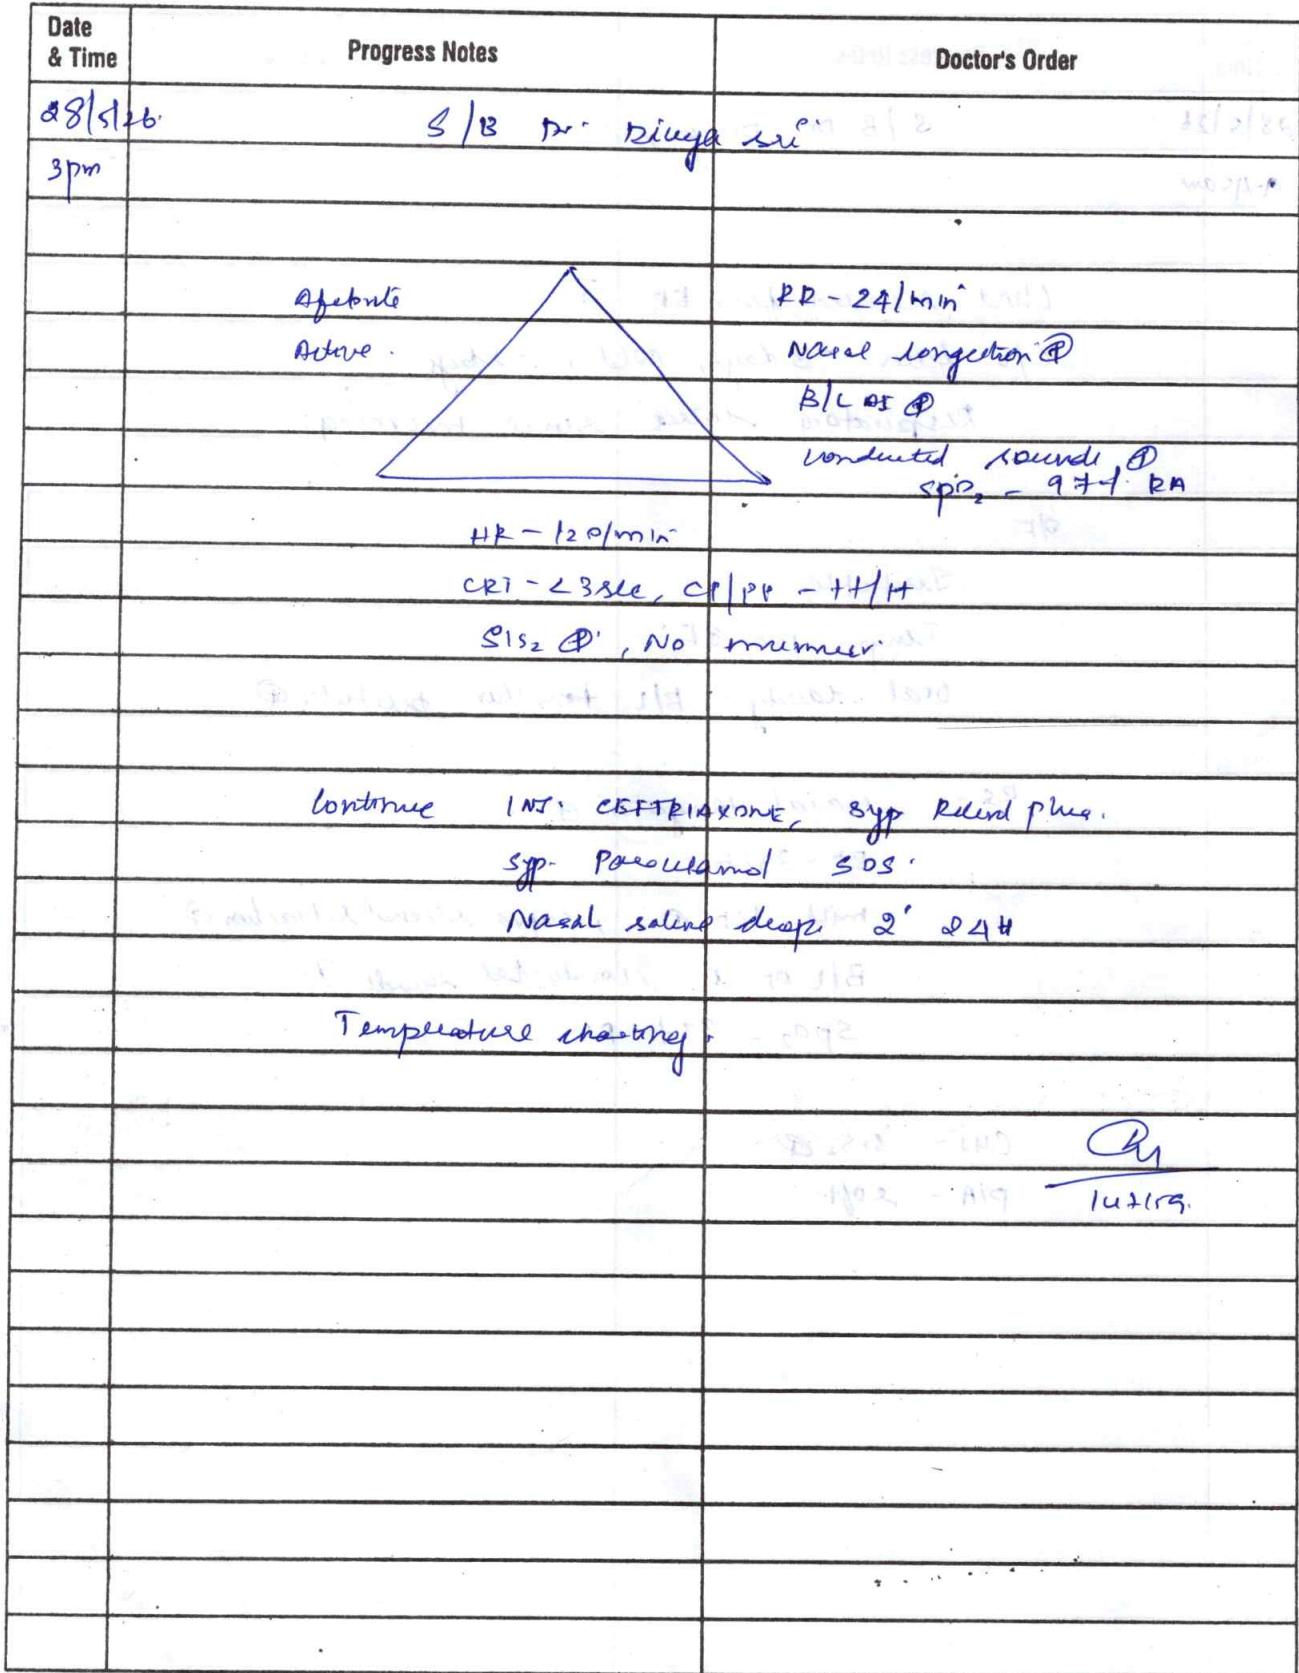 Date & Time
Progress Notes
Doctor's Order
28/5/26.
S/B Dr. Divya sri
3pm
Afebrile
RR - 24/min
Active.
Nasal congestion ⊕
B/L AE ⊕
conducted sounds ⊕
SpO₂ - 97% RA
HR - 120/min
CRT - <3sec, CP/PP - ++/++
S1S2 ⊕, No murmur
Continue INJ. CEFTRIAXONE, Syp Relent plus.
Syp. Paracetamol SOS.
Nasal saline drops 2° 24H
Temperature charting.